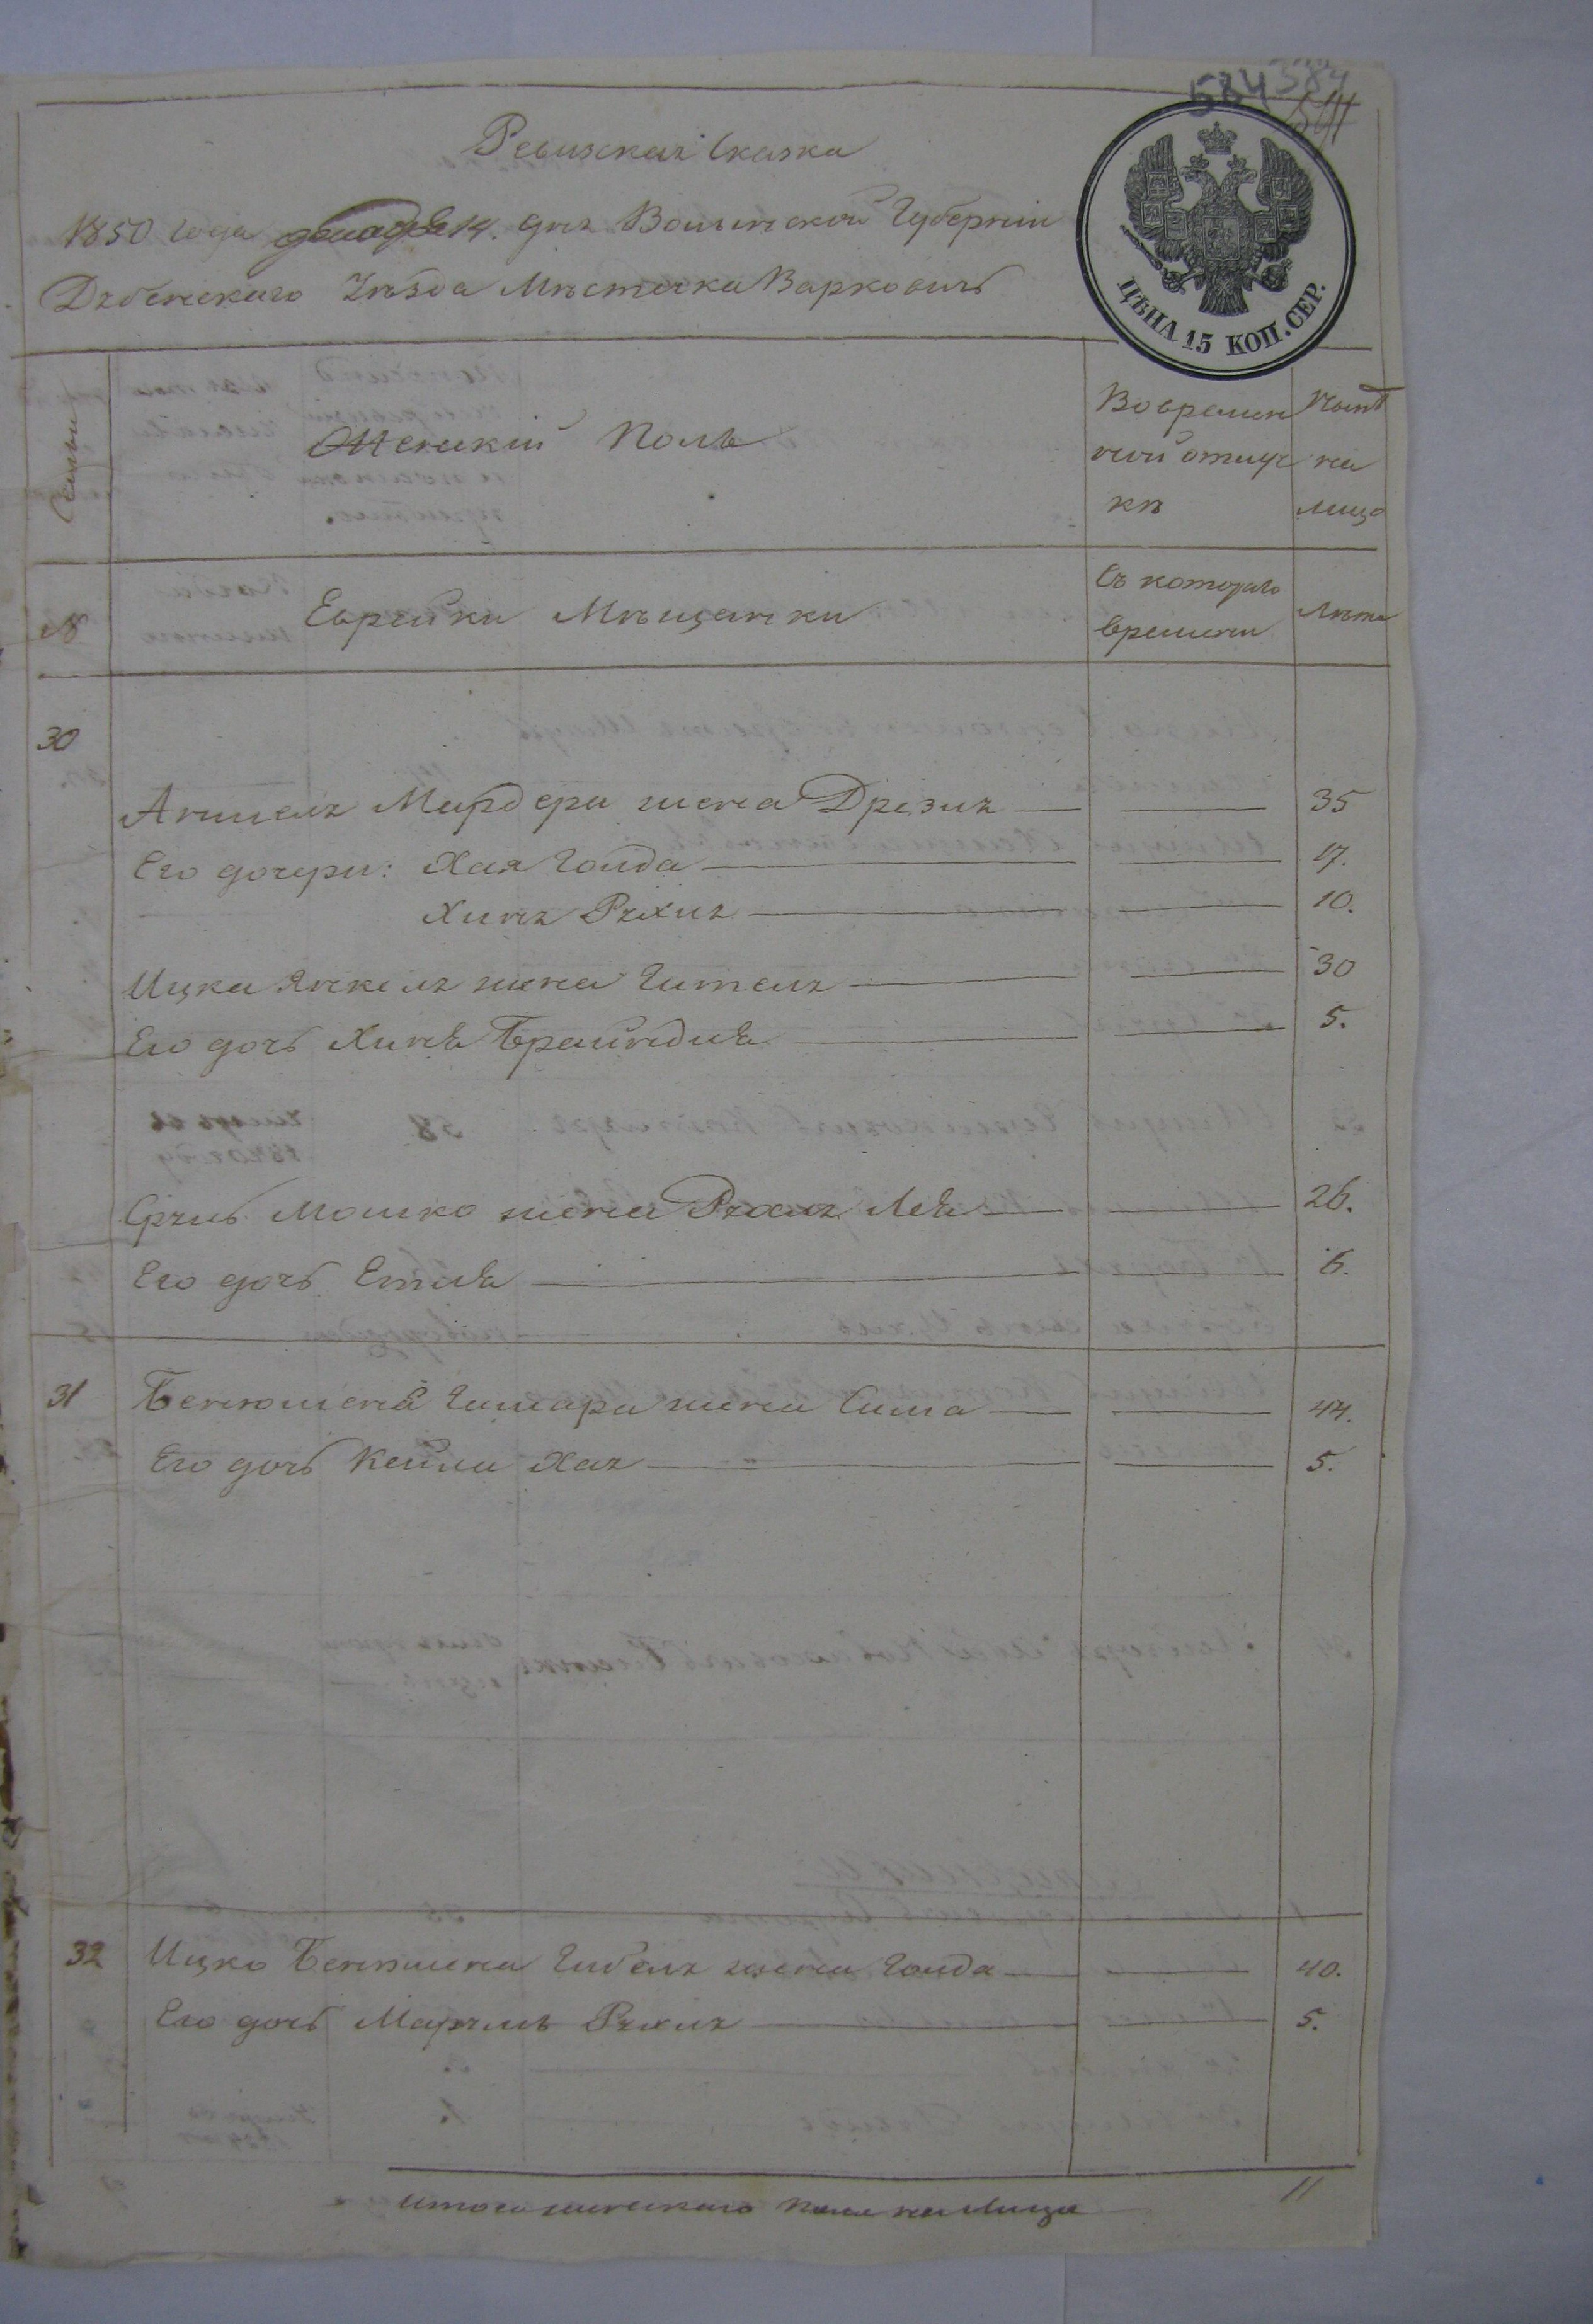 584 384
Ревизская Сказка
1850 года декабря 14. дня Волынской Губерніи
Дубенскаго Уѣзда Мѣстечка Варковичь
ЦѢНА 15 КОП. СЕР.
Семьи
Женскій Полъ
Во времен
ной отлуч
кѣ
Нынѣ
на
лицо
№
Еврейки Мѣщанки
Съ котораго
времени
Лѣта
30
Аншеля Мардера жена Дрезия 35
Его дочери: Хая Голда 17.
Хиня Рухля 10.
Ицка Янкеля жена Гителя 30
Его дочь Хиня Брайндля 5.
Сруль Мошко жена Рухля Лея 26.
Его дочь Етля 6.
31 Бенюмена Гитмара жена Сима 44.
Его дочь Кейла Хая 5.
32 Ицко Бенюмена жена Голда 40.
Его дочь Рухля 5.
Итого женскаго пола на лицо 11